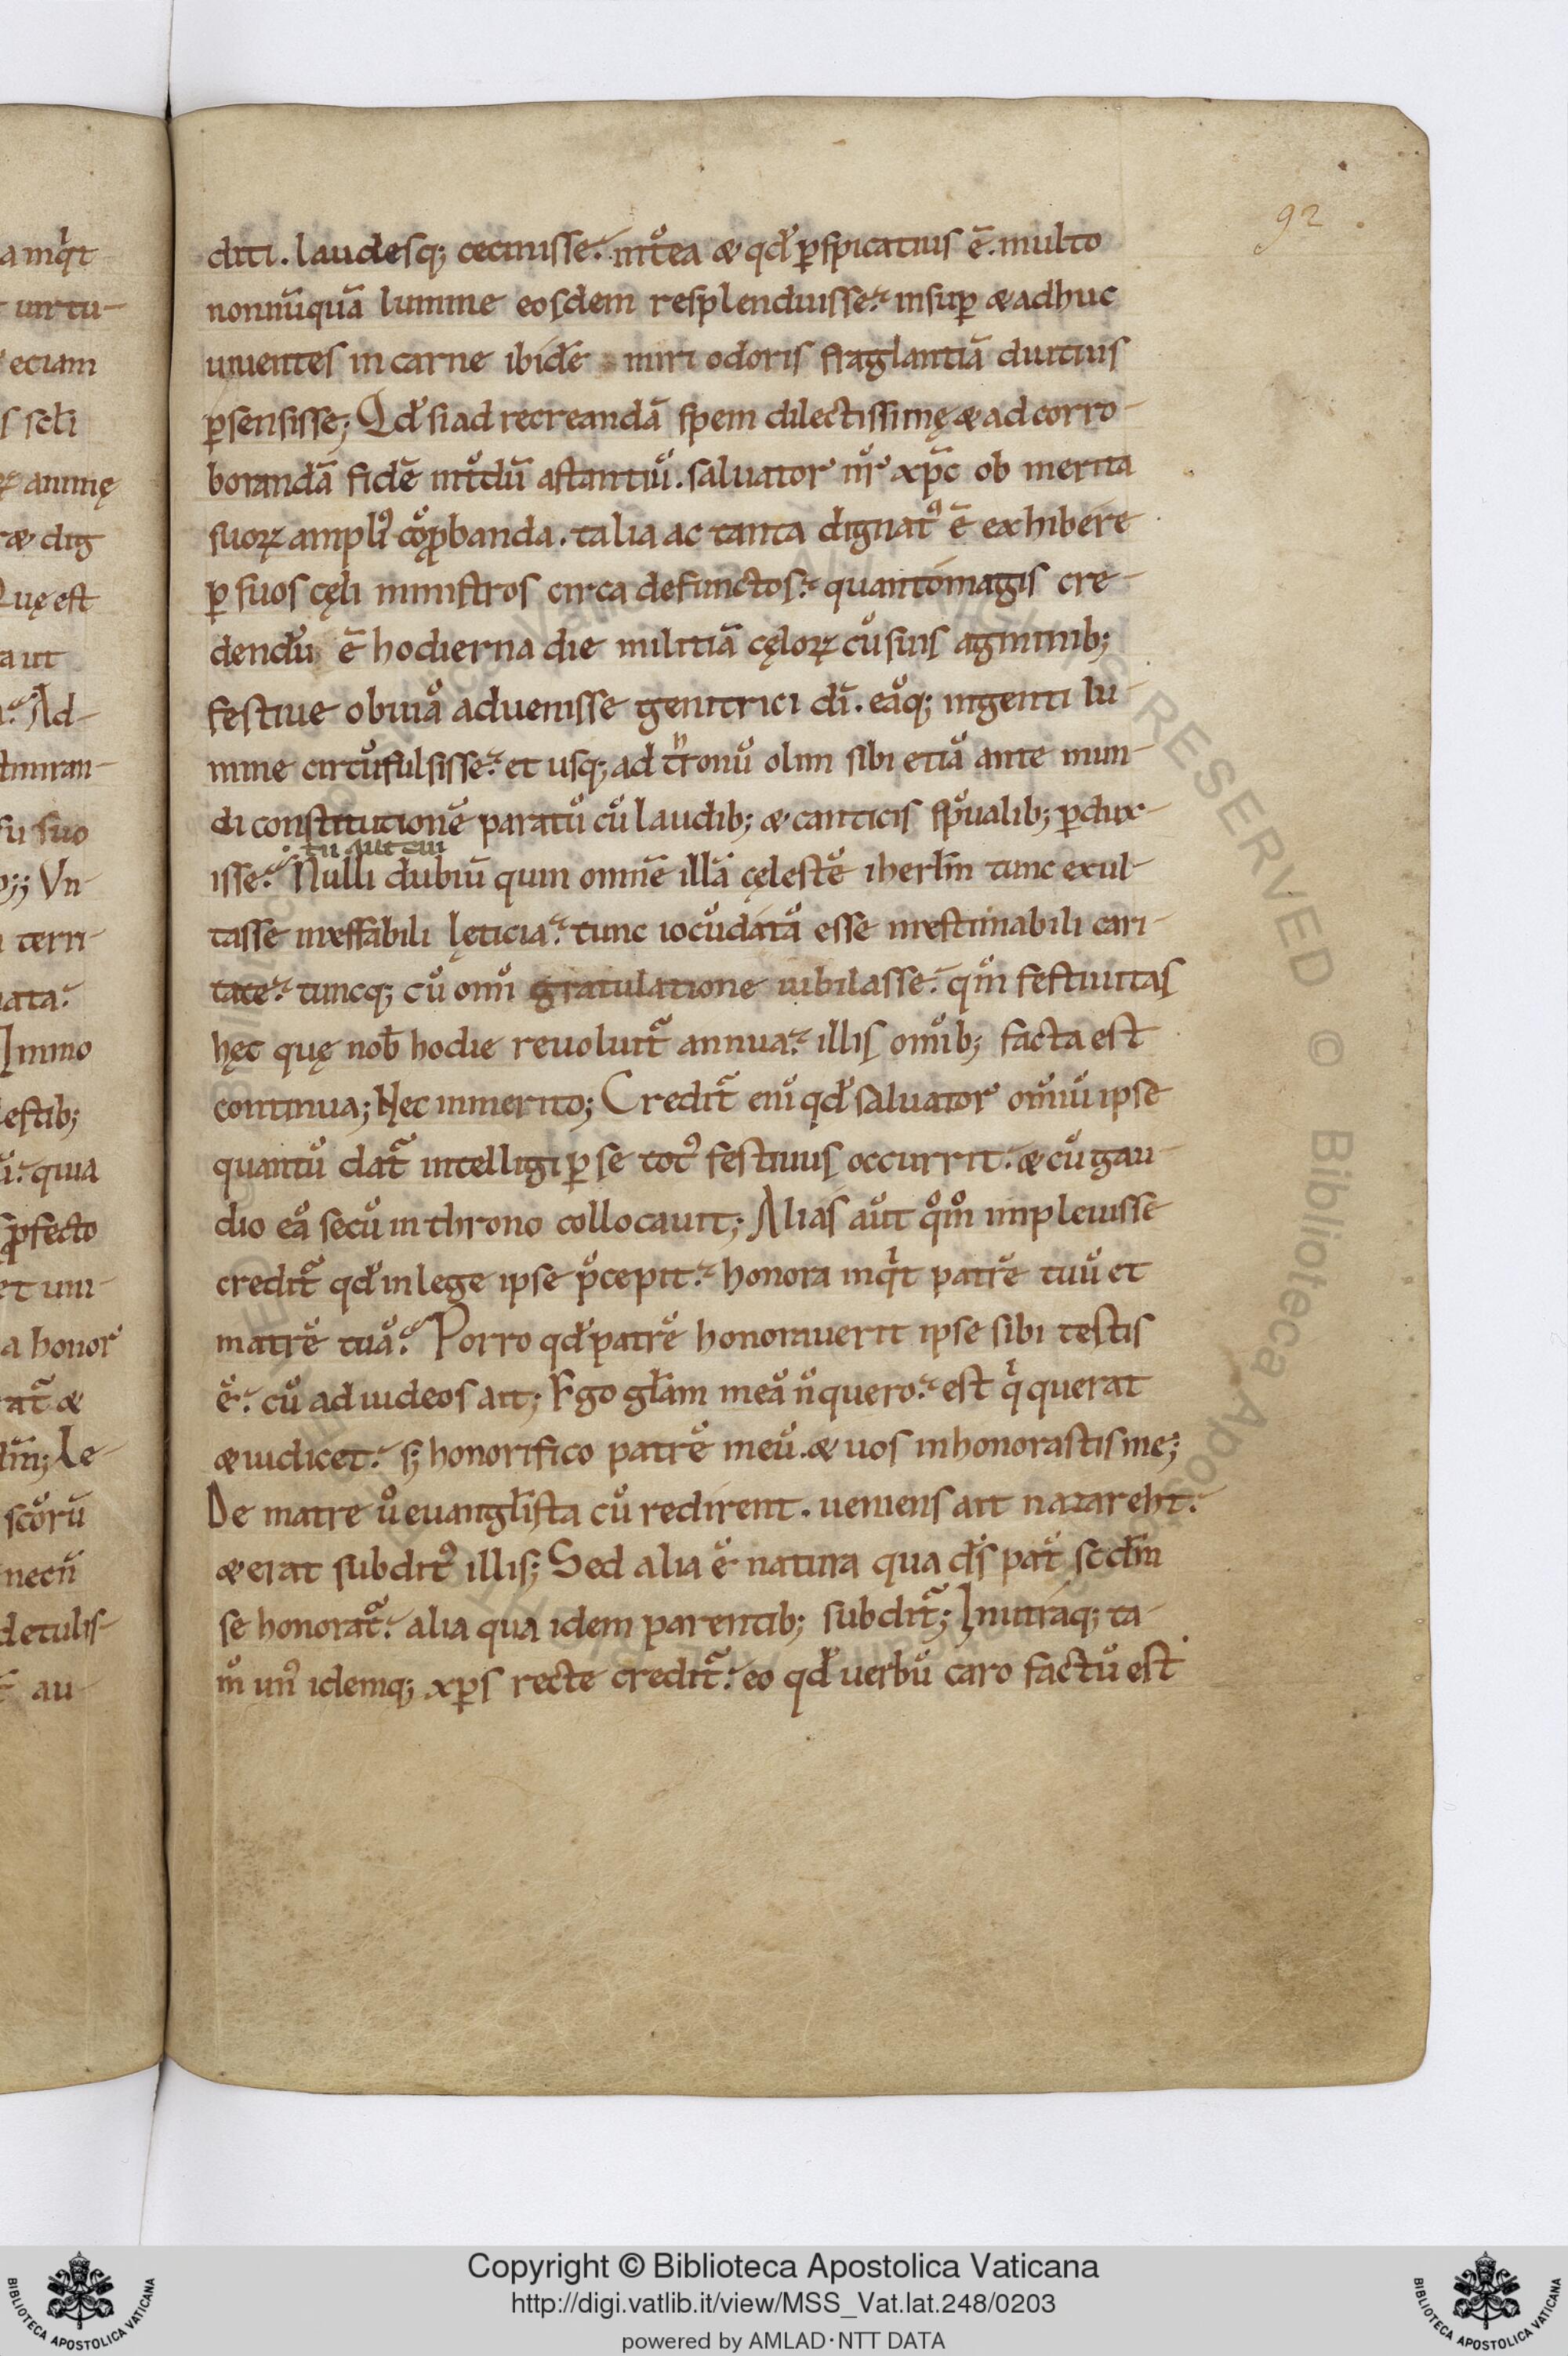 92
diti. laudesq; cecinisse. int̊ea & qd̕ p̱spicatius ē. multo
nonnūquā lumine eosdem resplenduisse. insup̱ & adhuc
uiuentes in carne ibidē miri odoris fraglantiā diutius
p̱sensisse; Qd̕ si ad recreandā spem dilectissimę & ad corro-
borandā fidē int̊dū astantiū. saluator nr̄ xp̄c ob merita
suoꝝ ampli᾽ cōꝓbanda. talia ac tanta dignat᾽ ē exhibere
p̱ suos cęli ministros circa defunctos. quantomagis cre-
dendū ē hodierna die militiā cęloꝝ cū suis agminib;
festiue obuiā aduenisse genitrici dī. eāq; ingenti lu-
mine circūfulsisse. et usq; ad tʰronū olim sibi etiā ante mun-
di constitutionē paratū cū laudib; & canticis sp̄ualib; p̱dux-
tu autem
isse. Nulli dubiū quin omnē illā cęlestē iherl̄m tunc exul-
tasse ineffabili lęticia. tunc iocūdatā esse inestimabili cari-
tate. tuncq; cū om̄i gratulatione iubilasse. qm̄ festiuitas
hęc quę nob̄ hodie reuoluit᷑ annua. illis om̄ib; facta est
continua; Nec inmerito; Credit᷑ eni̅ qd̕ saluator om̄iū ipse
quantū dat᷑ intelligi p̱ se tot᾽ festiuus occurrit. & cū gau-
dio eā secū in throno collocauit; Alias aūt qͦm̊ impleuisse
credit᷑ qd̕ in lege ipse p̄cepit. honora inqͥt patrē tuū et
matrē tuā. Porro qd̕ patrē honorauerit ipse sibi testis
ē. cū ad iudeos ait; Ego gl̄am meā n̄ quero. est qͥ querat
& iudicet. s; honorifico patrē meū. & uos inhonorastis me;
De matre ů euangl̄ista cū redirent. ueniens ait nazareht.
& erat subdit᾽ illis; Sed alia ē natura qua ds̄ pat̄ scd̄m
se honorat᷑. alia qua idem parentib; subdit᷑; In utraq; ta-
m̄ un᾽ idemq; xp̄s recte credit᷑. eo qd̕ uerbū caro factū est
Copyright © Biblioteca Apostolica Vaticana
http://digi.vatlib.it/view/MSS_Vat.lat.248/0203
powered by AMLAD·NTT DATA
BIBLIOTECA APOSTOLICA VATICANA
BIBLIOTECA APOSTOLICA VATICANA